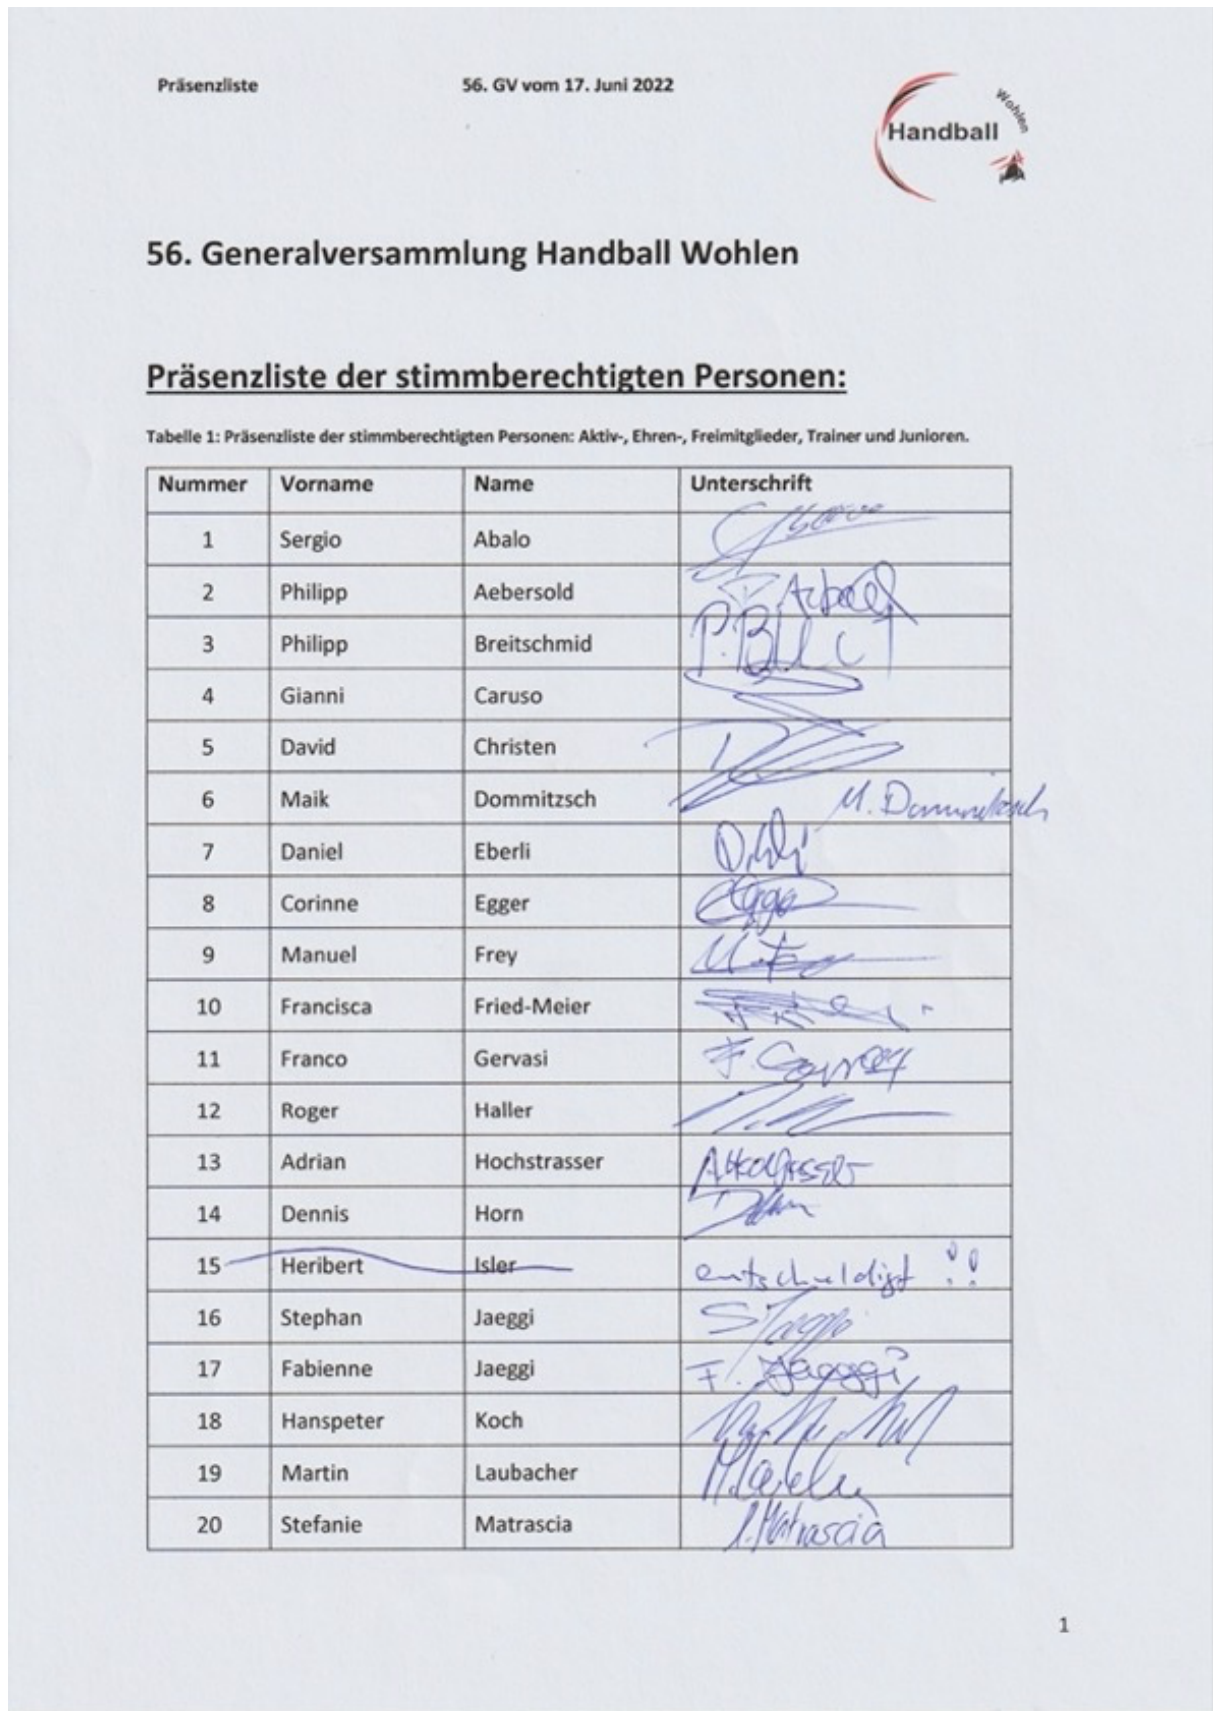 Präsenzliste 56. GV vom 17. Juni 2022
Handball Wohlen
56. Generalversammlung Handball Wohlen
Präsenzliste der stimmberechtigten Personen:
Tabelle 1: Präsenzliste der stimmberechtigten Personen: Aktiv-, Ehren-, Freimitglieder, Trainer und Junioren.
Nummer Vorname Name Unterschrift
1 Sergio Abalo
2 Philipp Aebersold
3 Philipp Breitschmid
4 Gianni Caruso
5 David Christen
6 Maik Dommitzsch M. Dommitzsch
7 Daniel Eberli
8 Corinne Egger
9 Manuel Frey
10 Francisca Fried-Meier
11 Franco Gervasi
12 Roger Haller
13 Adrian Hochstrasser
14 Dennis Horn
15 Heribert Isler entschuldigt !!
16 Stephan Jaeggi
17 Fabienne Jaeggi F. Jaeggi
18 Hanspeter Koch
19 Martin Laubacher
20 Stefanie Matrascia S. Matrascia
1